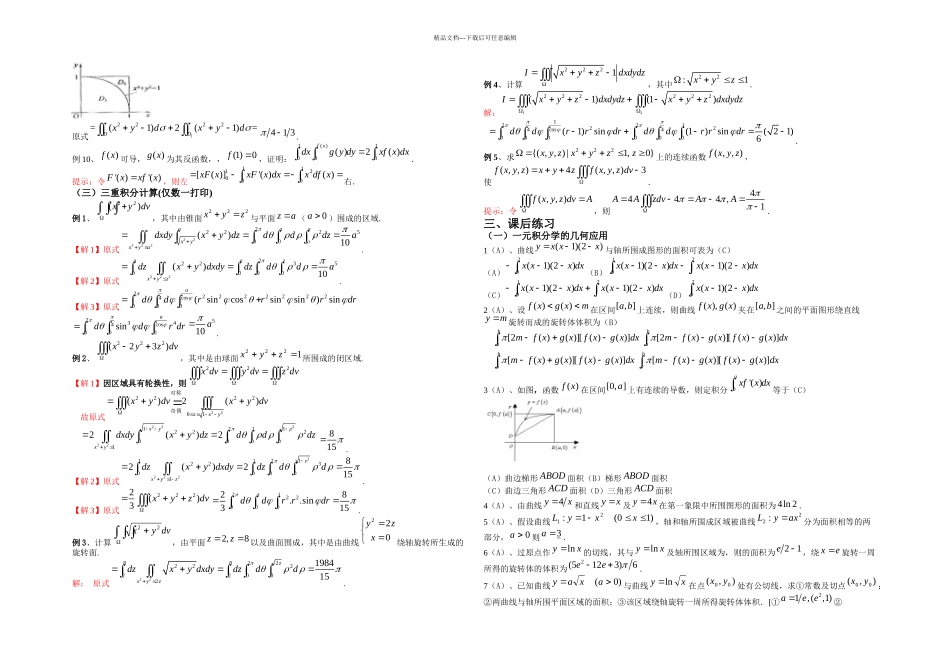 精品文档---下载后可任意编辑
y
1
D₂
x²+y²=1
D₁
1 x
原式 =∬(x²+y²−1)dσ+2∬(x²+y²−1)dσ= π4−13.
例10、f(x)可导，g(x)为其反函数，，f(1)=0，证明：∫dx∫g(y)dy=2∫xf(x)dx.
提示：令F'(x)=xf'(x)，则左=[xF(x)]−∫xF'(x)dx=∫x df(x)=右.
（三）三重积分计算(仅数一打印)
例1、∭(x²+y²)dv，其中由锥面x²+y²=z²与平面z=a（a>0）围成的区域.
【解1】原式=∬dxdy∫(x²+y²)dz=∫dθ∫ρ³dρ∫dz=π/10 a⁵.
【解2】原式=∫dz∬(x²+y²)dxdy=∫dz∫dθ∫ρ³dρ=π/10 a⁵.
【解3】原式=∫dθ∫dφ∫(r²sin²φcos²θ+r²sin²φsin²θ)r²sinφdr
=∫dθ∫sin³φdφ∫r⁴dr=π/10 a⁵.
例2、∭(x²+2y²+3z²)dv，其中是由球面x²+y²+z²=1所围成的闭区域.
【解1】因区域具有轮换性，则∭x²dv=∭y²dv=∭z²dv
故原式=∭(x²+y²)dv 对称 奇偶 2∭(x²+y²)dv
=2∬dxdy∫(x²+y²)dz=2∫dθ∫ρdρ∫ρ²dz=8/15 π.
【解2】原式=2∫dz∬(x²+y²)dxdy=2∫dz∫dθ∫ρ³dρ=8/15 π.
【解3】原式=2/3∭(x²+y²+z²)dv=2/3∫dθ∫dφ∫r²·r²sinφdr=8/15 π.
例3、计算∭√(x²+y²)dv，由平面z=2,z=8以及曲面围成，其中是由曲线{y²=2z x=0绕轴旋转所生成的
旋转面.
解： 原式=∫dz∬√(x²+y²)dxdy=∫dz∫dθ∫ρ²dρ=1984/15 π.
例4、计算I=∭|√(x²+y²+z²)−1|dxdydz，其中Ω:√(x²+y²)≤z≤1.
解：I=∭(√(x²+y²+z²)−1)dxdydz+∭(1−√(x²+y²+z²))dxdydz
=∫dθ∫dφ∫(r−1)r²sinφdr+∫dθ∫dφ∫(1−r)r²sinφdr=π/6(√2−1)
例5、求Ω={(x,y,z)|x²+y²+z²≤1,z≥0}上的连续函数f(x,y,z)，
使f(x,y,z)=x+y+4z∭f(x,y,z)dv−3
提示：令∭f(x,y,z)dv=A，则A=4A∭zdv−4π=πA−4π,A=4π/π−1.
三、课后练习
（一）一元积分学的几何应用
1（A）、曲线y=x(x−1)(2−x)与轴所围成图形的面积可表为（C）
（A）−∫x(x−1)(2−x)dx（B）∫x(x−1)(2−x)dx−∫x(x−1)(2−x)dx
（C）−∫x(x−1)(2−x)dx+∫x(x−1)(2−x)dx（D）∫x(x−1)(2−x)dx
2（A）、设f(x),g(x)<m在区间[a,b]上连续，则曲线f(x),g(x)夹在[a,b]之间的平面图形绕直线
y=m旋转而成的旋转体体积为（B）
∫π[2m−f(x)+g(x)][f(x)−g(x)]dx ∫π[2m−f(x)−g(x)][f(x)−g(x)]dx
∫π[m−f(x)+g(x)][f(x)−g(x)]dx ∫π[m−f(x)−g(x)][f(x)−g(x)]dx
3（A）、如图，函数f(x)在区间[0,a]上有连续的导数，则定积分∫xf'(x)dx等于（C）
y
y=f(x)
C[0,f(a)]
A[a,f(a)]
D
O
B(a,0)
x
（A）曲边梯形ABOD面积（B）梯形ABOD面积
（C）曲边三角形ACD面积（D）三角形ACD面积
4（A）、由曲线y=4/x和直线y=x及y=4x在第一象限中所围图形的面积为4ln2.
5（A）、假设曲线L₁:y=1−x² (0≤x≤1)，轴和轴所围成区域被曲线L₂:y=ax²分为面积相等的两
部分，a>0则a=3.
6（A）、过原点作y=lnx的切线，其与y=lnx及轴所围区域为，则的面积为e2−1，绕x=e旋转一周
所得的旋转体的体积为(5e²−12e+3)π6.
7（A）、已知曲线y=a√x (a>0)与曲线y=ln√x在点(x₀,y₀)处有公切线，求①常数及切点(x₀,y₀)；
②两曲线与轴所围平面区域的面积；③该区域绕轴旋转一周所得旋转体体积．[①a=1/e,(e²,1)②